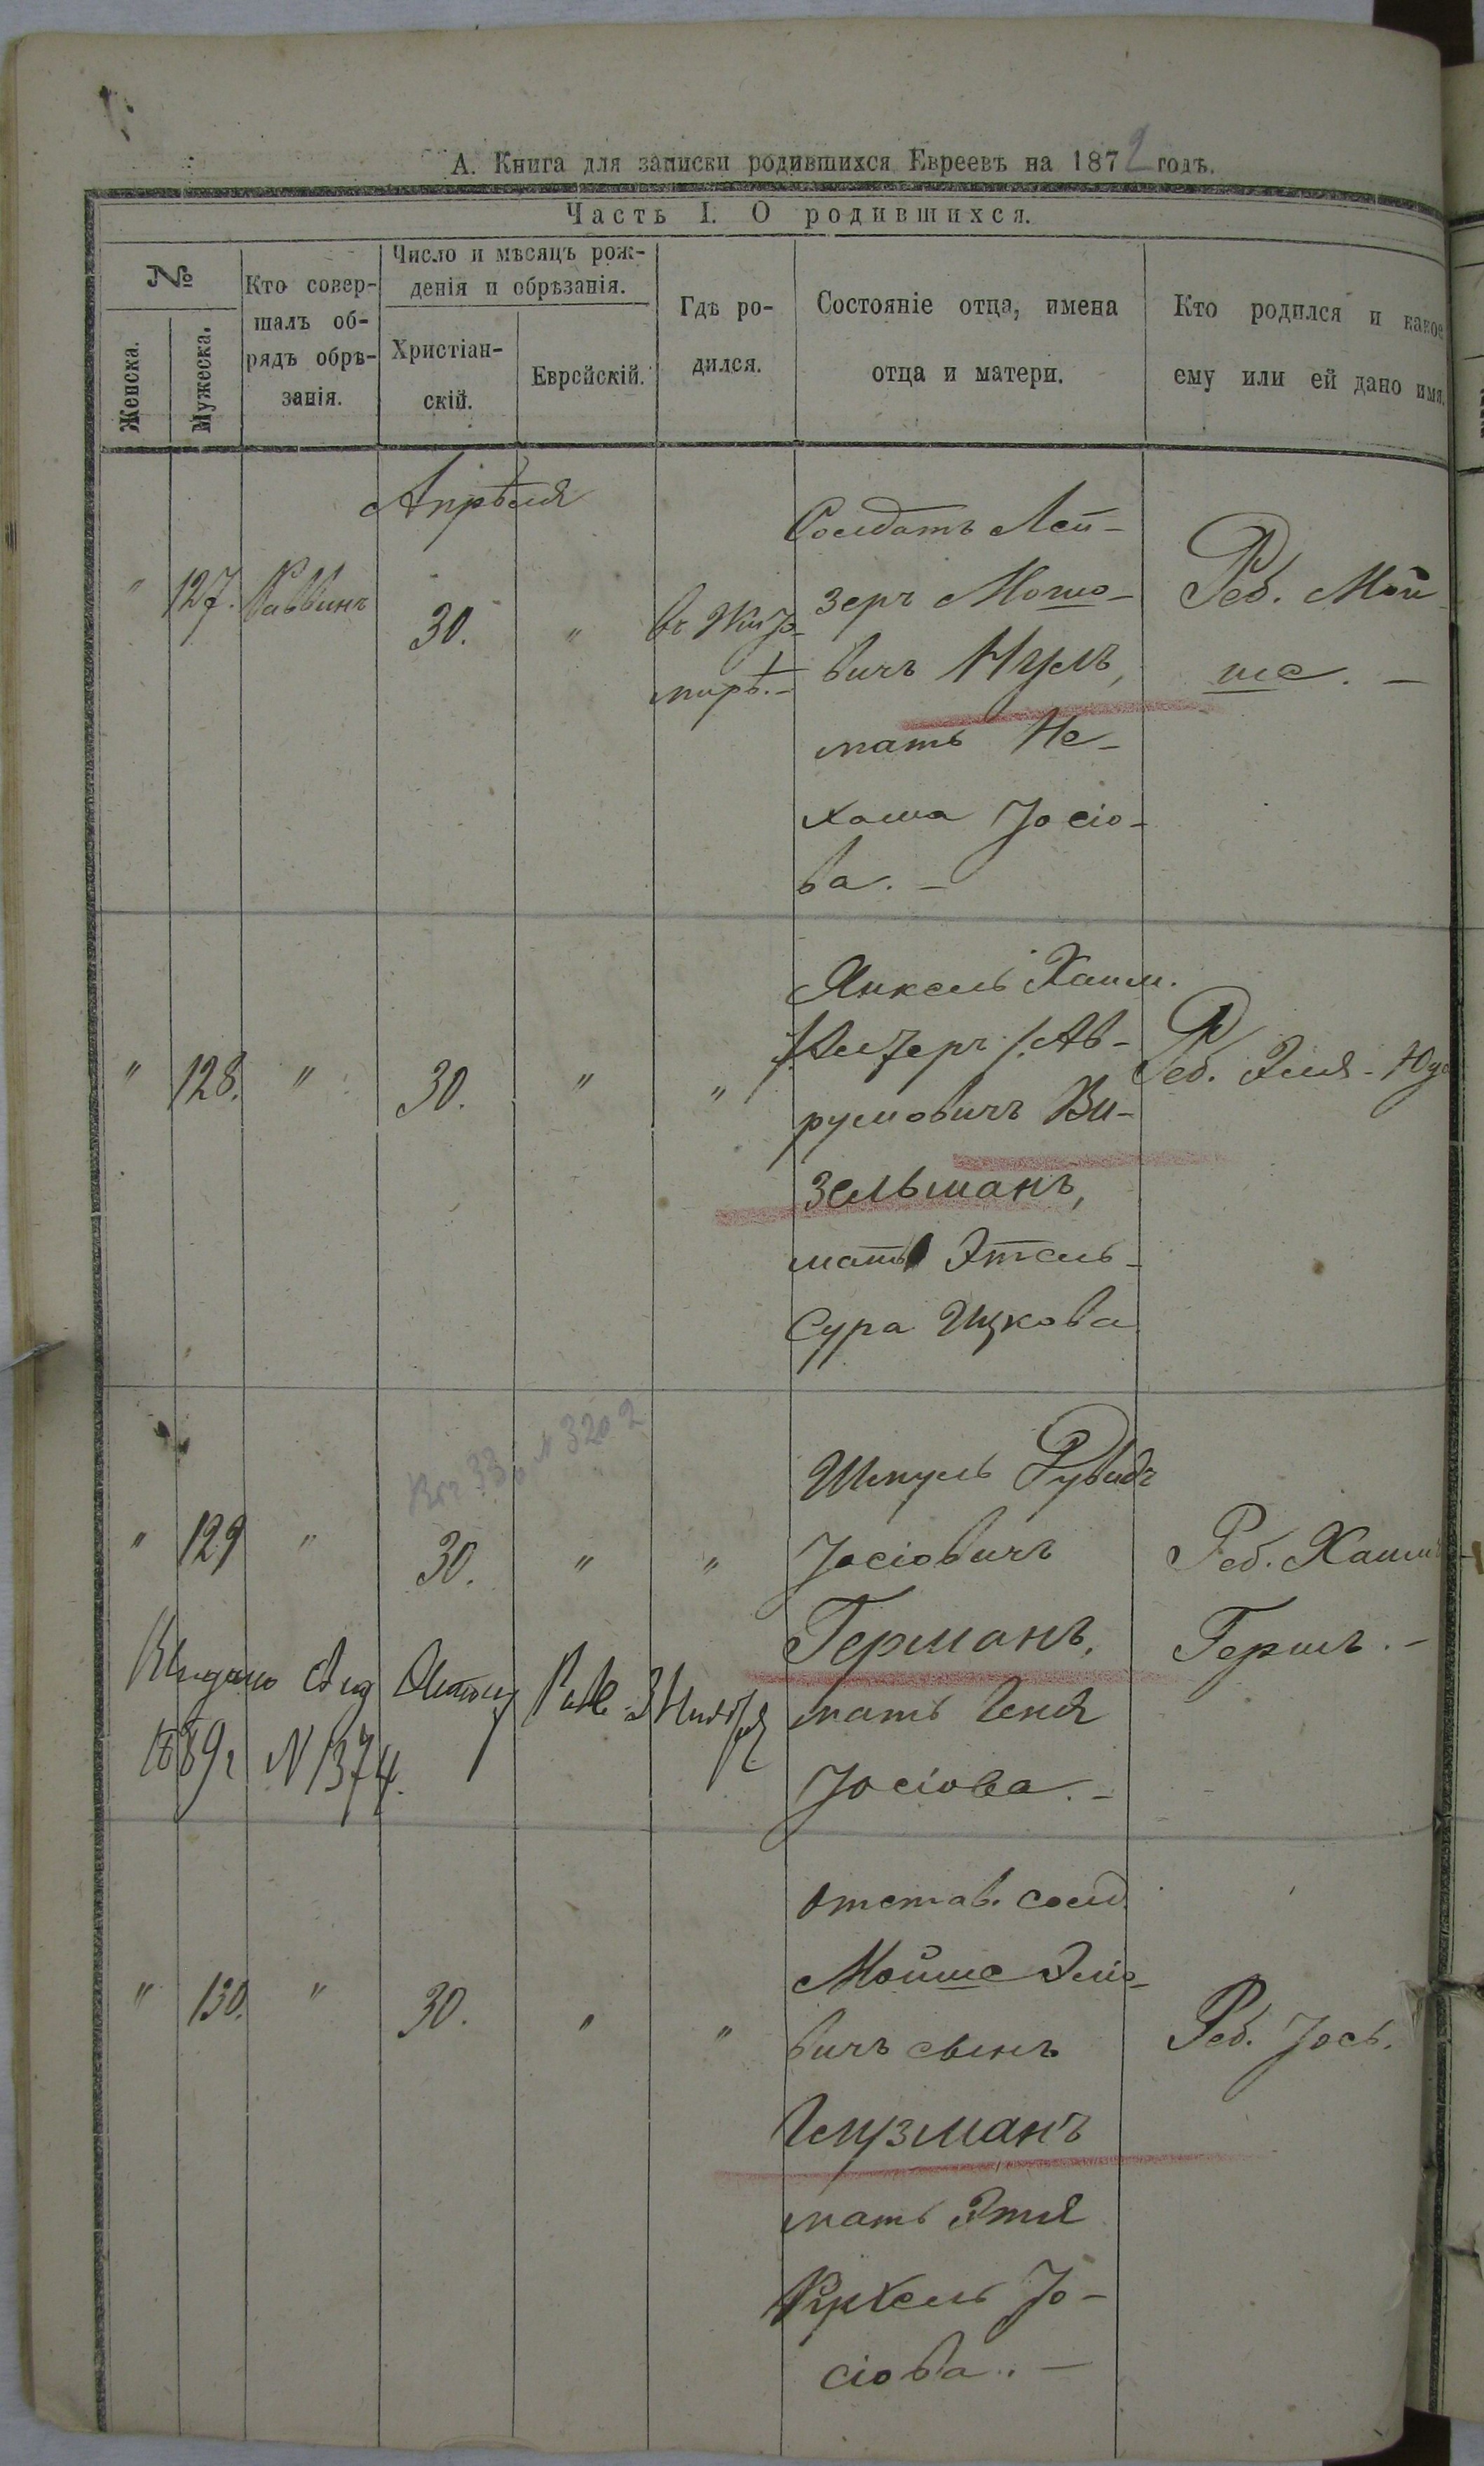 А. Книга для записки родившихся Евреевъ на 1872 годъ.
Часть I. О родившихся.
№
Женска.
Мужеска.
Кто совер-
шалъ об-
рядъ обрѣ-
занія.
Число и мѣсяцъ рож-
денія и обрѣзанія.
Христіан-
скій.
Еврейскій.
Гдѣ ро-
дился.
Состояніе отца, имена
отца и матери.
Кто родился и какое
ему или ей дано имя.
Апрѣля
" 127. Раввинъ 30. "
въ Жито-
мирѣ. -
Солдатъ Лей-
зеръ Мошо-
вичъ Нулъ,
мать Не-
хама Іосіо-
ва. -
Реб. Мой
ше. -
" 128. " 30. " "
Янкель Хаим.
Авр-
румовичъ Ви-
зельманъ,
мать Этель-
Сура Ицкова
Реб. Эля-Юд
№ 3202
" 129 " 30. " "
Шмуль Рувидъ
Іосіовичъ
Германъ,
мать Геня
Іосіова. -
Реб. Хаимъ-
Гершъ. -
Выдано
1889 г N 1374.
" 130. " 30. " "
отстав. солд.
Мойше Эліо-
вичъ сынъ
Глузманъ
мать Этя
Рухель Іо-
сіова. -
Реб. Іось.